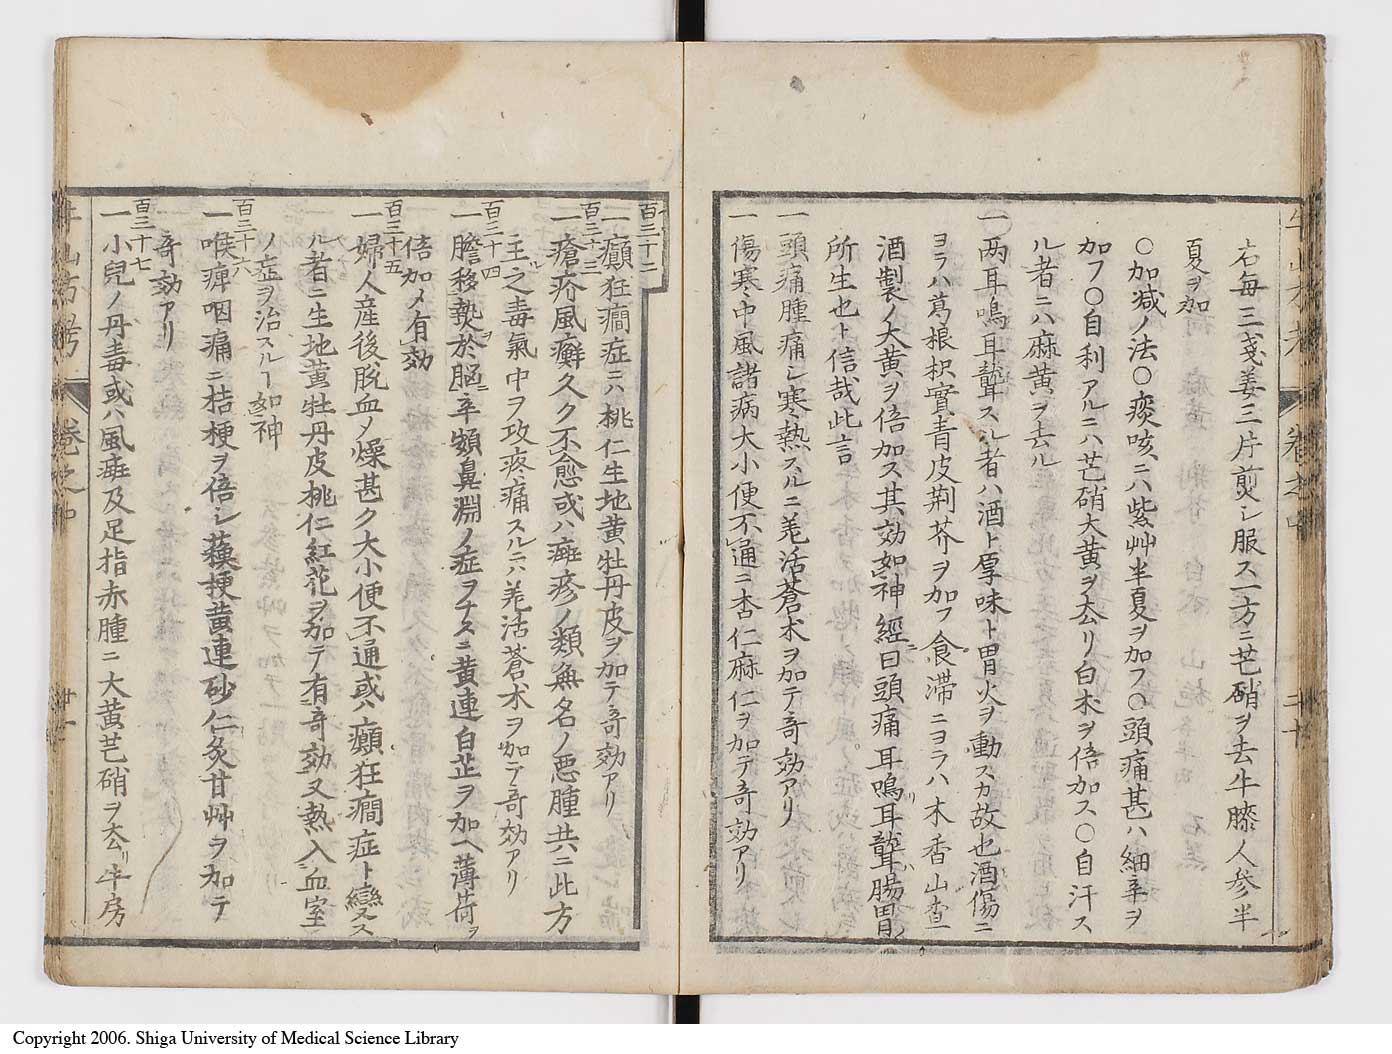 右毎三戔姜三片煎シ服ス一方ニ芒硝ヲ去牛膝人参半
夏ヲ加
○加減ノ法○痰咳ニハ紫艸半夏ヲ加フ○頭痛甚ハ細辛ヲ
加フ○自利アルニハ芒硝大黄ヲ去リ白朮ヲ倍加ス○自汗ス
ル者ニハ麻黄ヲ去ル
一两耳鳴耳聾スル者ハ酒ト厚味ト胃火ヲ動スカ故也酒傷ニ
ヨラハ葛根枳實青皮荆芥ヲ加フ食滞ニヨラハ木香山査
酒製ノ大黄ヲ倍加ス其効如神經曰頭痛耳鳴耳聾腸胃ノ
所生也ト信哉此言
一頭痛腫痛シ寒熱スルニ羗活蒼朮ヲ加テ竒効アリ
一傷寒中風諸病大小便不通ニ杏仁麻仁ヲ加テ竒効アリ
牛山方考
卷之中
二十
百三十二
一癲狂癇症ニハ桃仁生地黄牡丹皮ヲ加テ竒効アリ
百三十三
一瘡疥風癬久ク不愈或ハ癍疹ノ類無名ノ悪腫共ニ此方
主之毒氣中ヲ攻疼痛スルニハ羗活蒼朮ヲ加テ竒効アリ
百三十四
一膽移熱於脳辛頞鼻淵ノ症ヲナスニ黄連白芷ヲ加ヘ薄荷ヲ
倍加メ有効
百三十五
一婦人産後脱血ノ燥甚ク大小便不通或ハ癲狂癇症ト變ス
ル者ニ生地黄牡丹皮桃仁紅花ヲ加テ有竒効又熱入血室
ノ症ヲ治スルヿ如神
百三十六
一喉痺咽痛ニ桔梗ヲ倍シ黄連砂仁炙甘艸ヲ加テ
竒効アリ
百三十七
一小兒ノ丹毒或ハ風癍及足指赤腫ニ大黄芒硝ヲ去リ牛房
牛山方考
卷之中
廿一
Copyright 2006. Shiga University of Medical Science Library